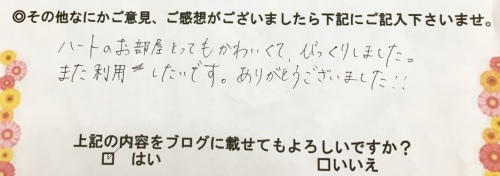 ◎その他なにかご意見、ご感想がございましたら下記にご記入下さいませ。
ハートのお部屋とってもかわいくて、びっくりしました。
また利用したいです。ありがとうございました!!
上記の内容をブログに載せてもよろしいですか?
☑ はい □いいえ